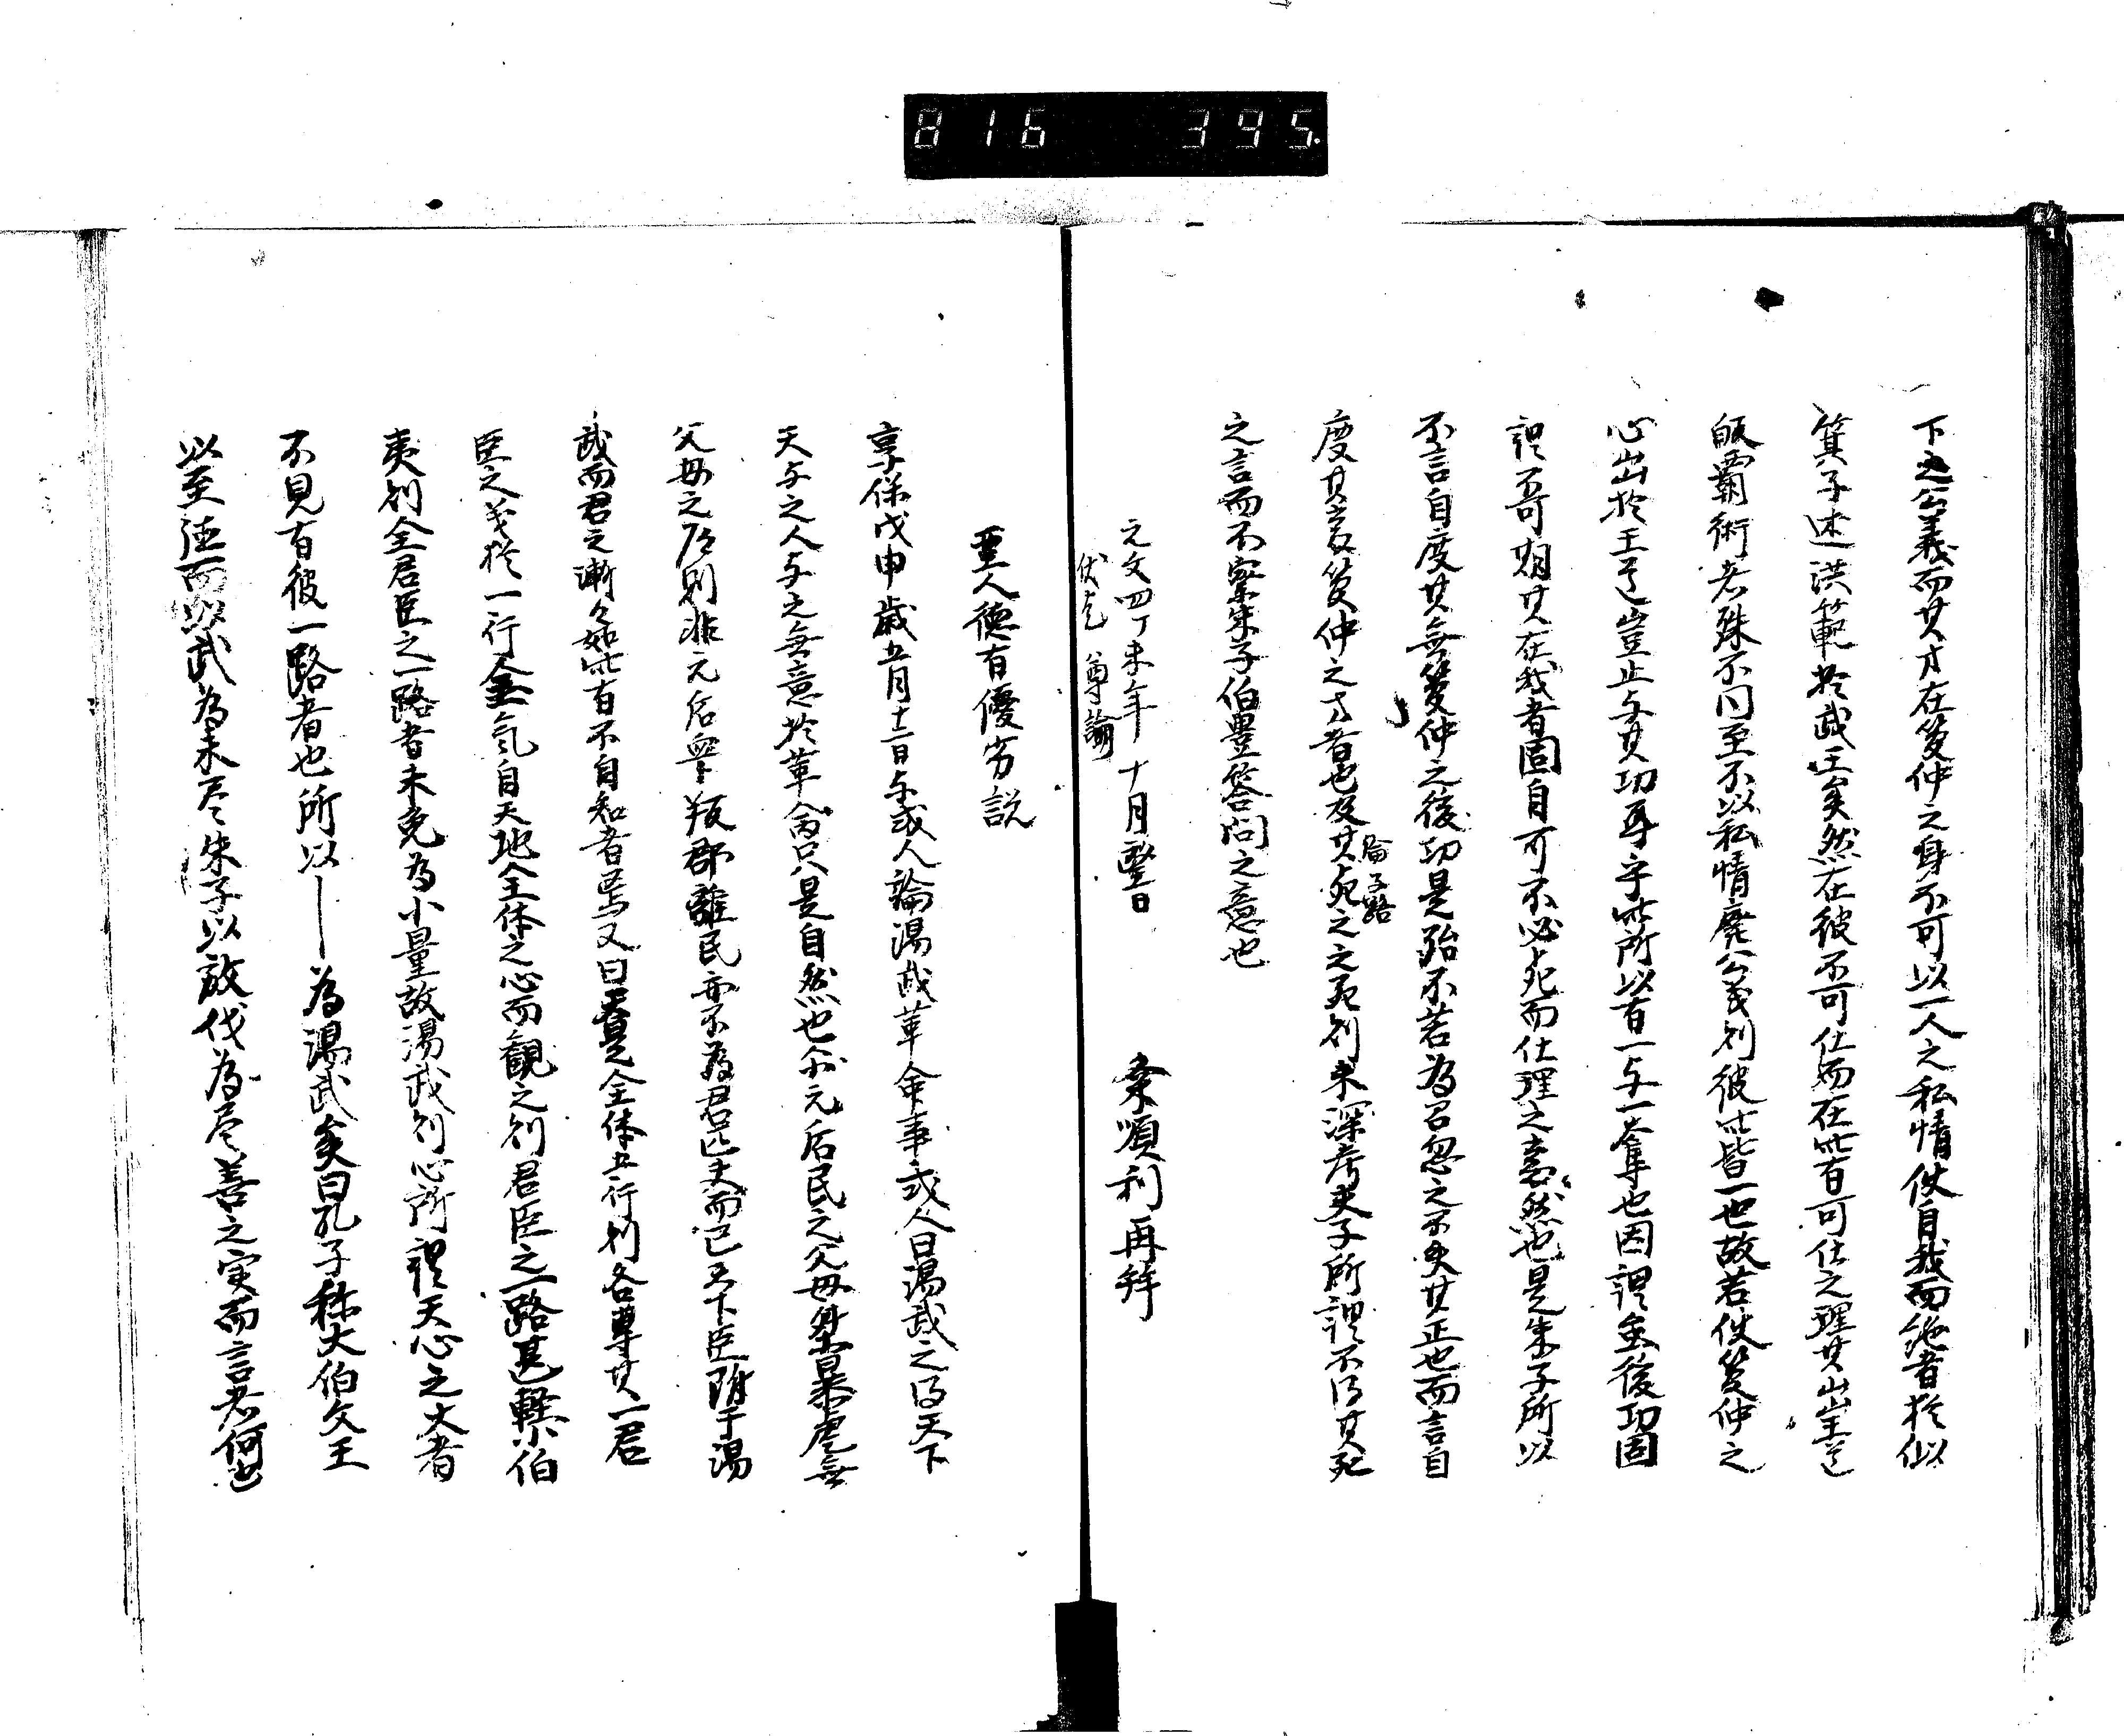 816 395.
下之公義而其才在管仲之身不可以一人之私情仗自我而絶者於似
箕子述洪範於武王矣然在彼不可仕而在此有可仕之理其出王道
覇術者殊不同至不以私情廃公義則彼此皆一也故若仗管仲之
心出於王道豈止与其功耳乎此所以有一与一奪也因謂無後功固
謂不可期其在我者固自可不必死而仕理之意然也是朱子所以
不言自度其無管仲之後功是殆不若為召忽之不失其正也而言自
度其意管仲之才者也及其死之之死則未深考夫子所謂不得其死
論子路
之言而不察朱子伯豊答問之意也
元文四丁未年十月翌日 桑順利再拝
伏乞 尊諭
聖人徳有優劣説
享保戊申歳五月十一日与或人論湯武革命事或人曰湯武之得天下
天与之人与之無意於革命只是自然也尓元后民之父母桀暴虐無
父母之 則非元后 叛郡離民亦不為君匹夫而已天下臣附于湯
武而君之漸々如此有不自知者焉又曰 是全体五行則各尊其一君
臣之義於一行全気自天地全体之心而観之則君臣之一路甚軽小伯
夷則全君臣之一路者未免為小量故湯武則心所謂天心之大者
不見有彼一路者也所以―為湯武矣曰孔子称大伯文王
以至徳而以武為未尽朱子以放伐為尽善之実而言者何也